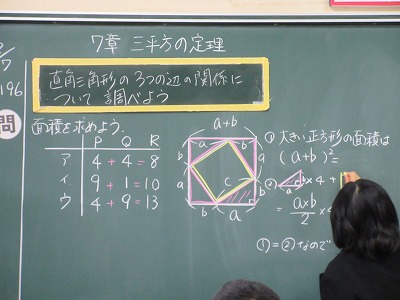 7章 三平方の定理
直角三角形の3つの辺の関係に
ついて 調べよう
196
問 面積を求めよう.
P Q R
ア 4 + 4 = 8
イ 9 + 1 = 10
ウ 4 + 9 = 13
a+b
a b
b a
c
a b
b a
① 大きい正方形の面積は
(a+b)²=
② a b ×4+
= a×b/2 ×4
①=②なので